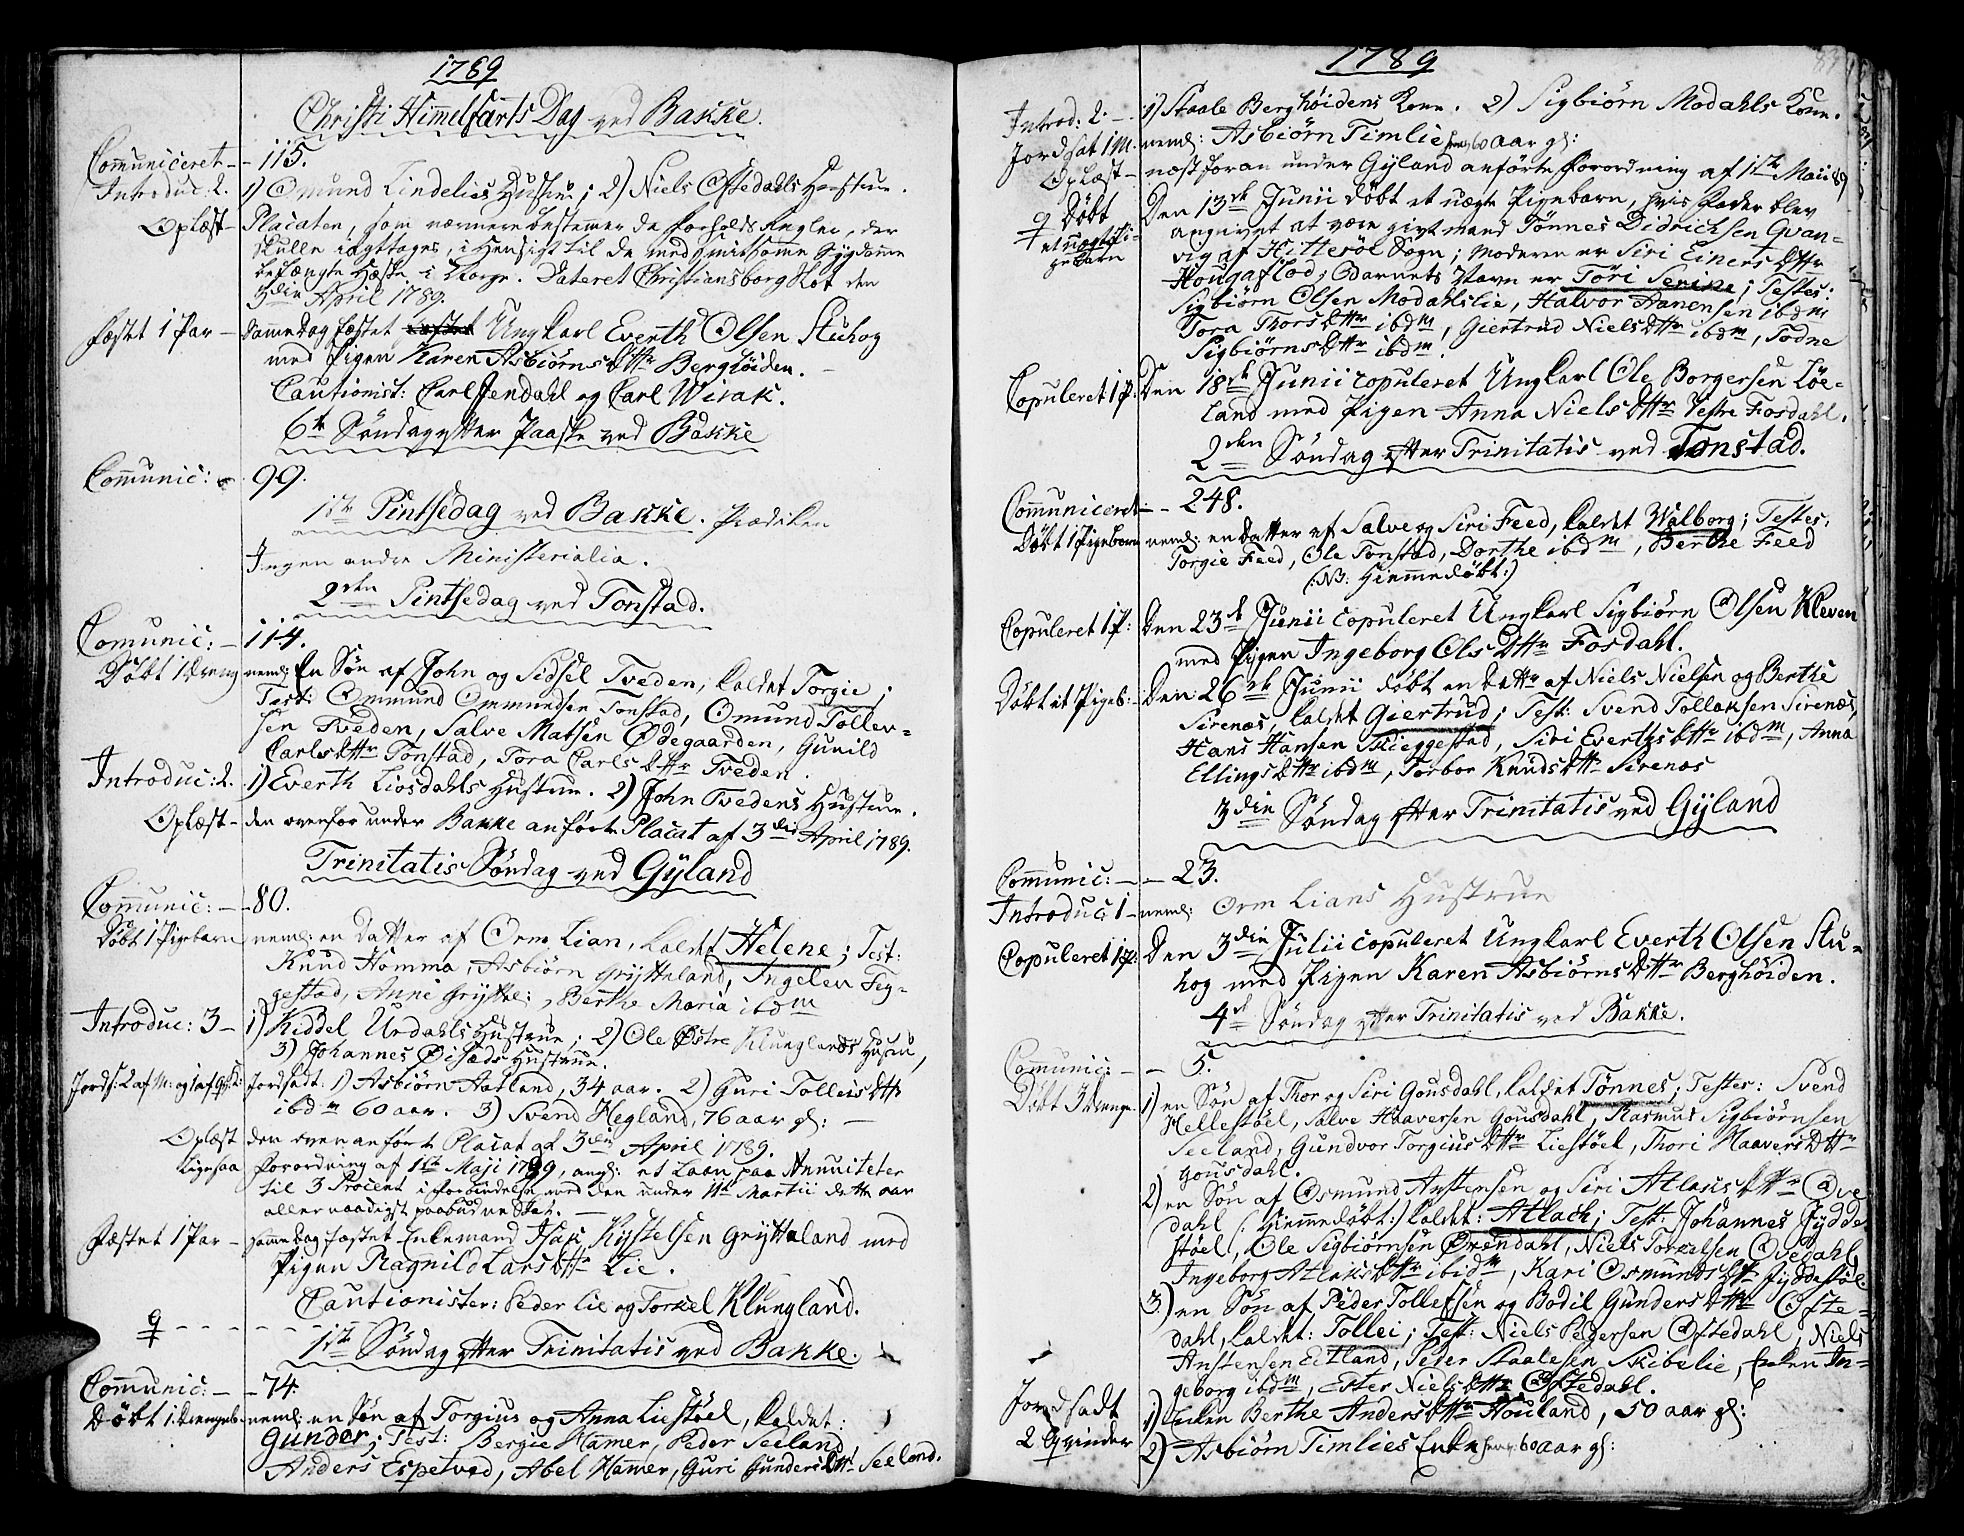 1789
Christi Himmelfarts Dag ved Bakke.
Communiceret - - 115.
Introduc: 2. 1) Omund Lindelies Hustrue; 2) Niels Oftedahls Hustrue.
Oplæst - Placaten, som nærmere bestemmer de forholds Regler, der
skulle iagttages, i Hensigt til de med smitsomme Sygdomme
befængte Heste i Norge. Dateret Christiansborg Slot den
3die April 1789.
Fæstet 1 Par - Samme Dag fæstet Ungkarl Everth Olsen Stuhog
med Pigen Karen Asbiørns Dttr Berghöiden.
Cautionist: Carl Jendahl og Carl Wirak.
6te Søndag efter Paaske ved Bakke
Communic: 99.
1ste Pintsedag ved Bakke. Prædiken
Ingen andre Ministerialia.
2den Pintsedag ved Tonstad.
Comunic: - 114.
Döbt 1 Dreng neml: En Søn af John og Sidsel Tveden, kaldet Torgie;
Test: Ommund Ommundsen Tonstad, Omund Tollev-
sen Tveden, Salve Matsen Ødegaarden, Gunild
Carls Dttr Tonstad, Tora Carls Dttr Tveden.
Introduc: 2. 1) Everth Liosdahls Hustrue. 2) John Tvedens Hustrue.
Oplæst - den ovenfor under Bakke anførte Placat af 3die April 1789.
Trinitatis Søndag ved Gyland
Comunic: - - 80.
Döbt 1 Pigebarn neml: en Datter af Orm Lian, kaldet Helene; Test:
Knud Homma, Asbiörn Grytteland, Ingelev Feg-
gestad, Anne Grytte:, Berthe Maria ibdm
Introduc: 3 - 1) Kiddel Urdahls Hustrue; 2) Ole Østre Klunglands Hustru,
3) Johannes Øisæds Hustrue.
Jords: 2 af M: og 1 af Qk: Jordsadt: 1) Asbiörn Aatland, 34 aar. 2) Guri Tolleis Dttr
ibdm 60 aar. 3) Svend Hegland, 76 aar gl: -
Oplæst den ovenanført Placat af 3die April 1789.
Ligesaa Forordning af 1ste Maji 1789, angl: et Laan paa Annuiteter
til 3 Procent i forbindelse med den under 11te Martii dette aar
allernaadigst paabudne Skat. -
Fæstet 1 Par - samme Dag fæstet Enkemand Isak Kystelsen Grytteland med
Pigen Ragnild Lars Dttr Lie.
Cautionister: Peder Lie og Torkel Klungland.
1ste Søndag efter Trinitatis ved Bakke.
Comunic: - - 74.
Döbt 1 Drengeb: neml: en Søn af Torgius og Anna Liestöel, kaldet:
Gunder; Test: Bergie Hamer, Peder Seeland,
Anders Espetved, Abel Hamer, Guri Gunders Dttr Seeland.
1789
Introd: 2. - 1) Staale Berghöidens Kone. 2) Sigbiörn Modahls Kone.
Jordsat 1 M. neml: Asbiörn Timlie 60 aar gl:
Oplæst - næst foran under Gyland anførte Forordning af 1ste Maii 89
Döbt Den 13de Junii döbt et uægte Pigebarn, hvis Fader blev
et uægte Pi- angivet at være givt mand Tönnes Didrichsen Qvan-
gebarn vig af Hitteröe Sogn; Moderen er Siri Einers Dttr
Hougaflod; Barnets Navn er Töri Serine; Testes:
Sigbiörn Olsen Modahlslie, Halvor Hanensen ibdm
Tora Thors Dttr ibdm, Giertrud Niels Dttr ibdm, Todne
Sigbiörns Dttr ibdm.
Copuleret 1 P. Den 18de Junii copuleret Ungkarl Ole Borgersen Löe-
land med Pigen Anna Niels Dttr Vestre Fosdahl.
2den Søndag efter Trinitatis ved Tonstad.
Communiceret - - 248.
Döbt 1 Pigebarn neml: en Datter af Salve og Siri Feed, kaldet Walborg; Testes:
Torgie Feed, Ole Tonstad, Dorthe ibdm, Berthe Feed
(NB: Hiemmedöbt:)
Copuleret 1 P: Den 23de Junii copuleret Ungkarl Sigbiörn Olsen Kleven
med Pigen Ingeborg Ols Dttr Fosdahl.
Döbt et Pigeb: - Den 26de Junii döbt en Dattr af Niels Nielsen og Berthe
Sirenæs, kaldet Giertrud; Test: Svend Tollaksen Sirenæs,
Hans Hansen Skieggestad, Siri Everths Dttr ibdm, Anna
Ellings Dttr ibdm, Torbor Knuds Dttr Sirenæs
3die Søndag efter Trinitatis ved Gyland
Communic: - - 23.
Introduc: 1 - neml: Orm Lians Hustrue
Copuleret 1 P: Den 3die Julii copuleret Ungkarl Everth Olsen Stu-
hog med Pigen Karen Asbiörns Dttr Berghöiden.
4de Søndag efter Trinitatis ved Bakke.
Comunic: - - 5.
Döbt 3 Drenge. 1) en Søn af Thor og Siri Gousdahl, kaldet Tönnes; Testes: Svend
Hellestöel, Salve Haaversen Gousdahl, Rasmus Sigbiörnsen
Seeland, Gundvor Torgius Dttr Liestöel, Thori Haavers Dttr
Gousdahl.
2) en Søn af Osmund Anstensen og Siri Atlaks Dttr Qve
dahl (: Hiemmedöbt:) kaldet: Atlach; Test: Johannes Jydde
stöel, Ole Sigbiörnsen Ørendahl, Niels Torkelsen Qvedahl,
Ingeborg Atlaks Dttr ibidm, Kari Osmunds Dttr Jyddestöl.
3) en Søn af Peder Tollefsen og Bodil Gunders Dttr Ofte-
dahl, kaldet: Tollei; Test: Niels Pedersen Oftedahl, Niels
Anstensen Eitland, Peder Staalesen Skibelie, Enken In-
geborg ibdm, Ester Niels Dttr Oftedahl.
Jordsadt 1) Enken Berthe Anders Dttr Houland, 50 aar gl:
2 Qvinder 2) Asbiörn Timlies Enke 60 aar gl: